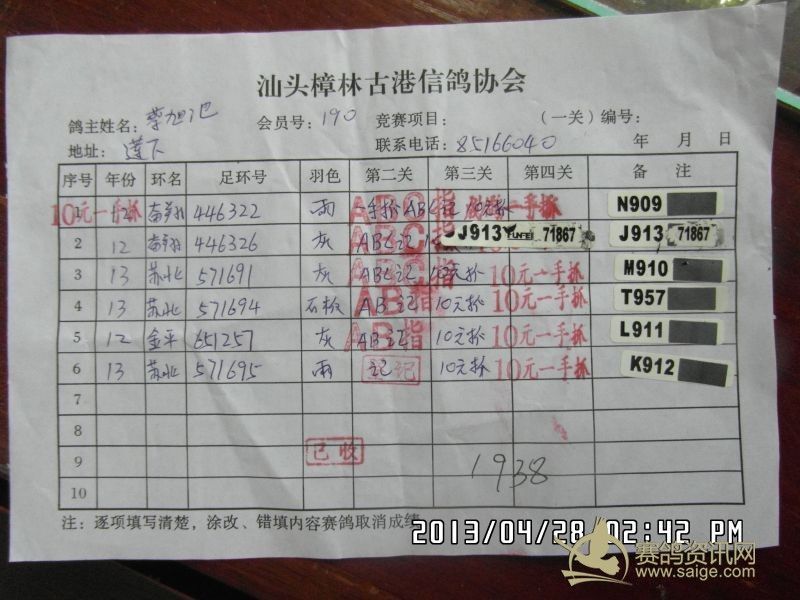 汕头樟林古港信鸽协会
鸽主姓名: 会员号: 190 竞赛项目: (一关) 编号:
地址: 莲下 联系电话: 85166040 年 月 日
序号 年份 环名 足环号 羽色 第二关 第三关 第四关 备 注
1 12 446322 雨 ABC指 10元一手抓 N909
2 12 446326 灰 ABC指 J913 YUNFEI 71867 J913 71867
3 13 苏北 571691 灰 ABC指 10元抓 10元一手抓 M910
4 13 苏北 571694 石板 AB指 10元抓 10元一手抓 T957
5 12 金平 651257 灰 AB指 10元抓 10元一手抓 L911
6 13 苏北 571695 雨 记 10元抓 10元一手抓 K912
7
8
9 已收 1938
10
注: 逐项填写清楚，涂改、错填内容赛鸽取消成绩
2013/04/28 02:42 PM
赛鸽资讯网
www.saige.com